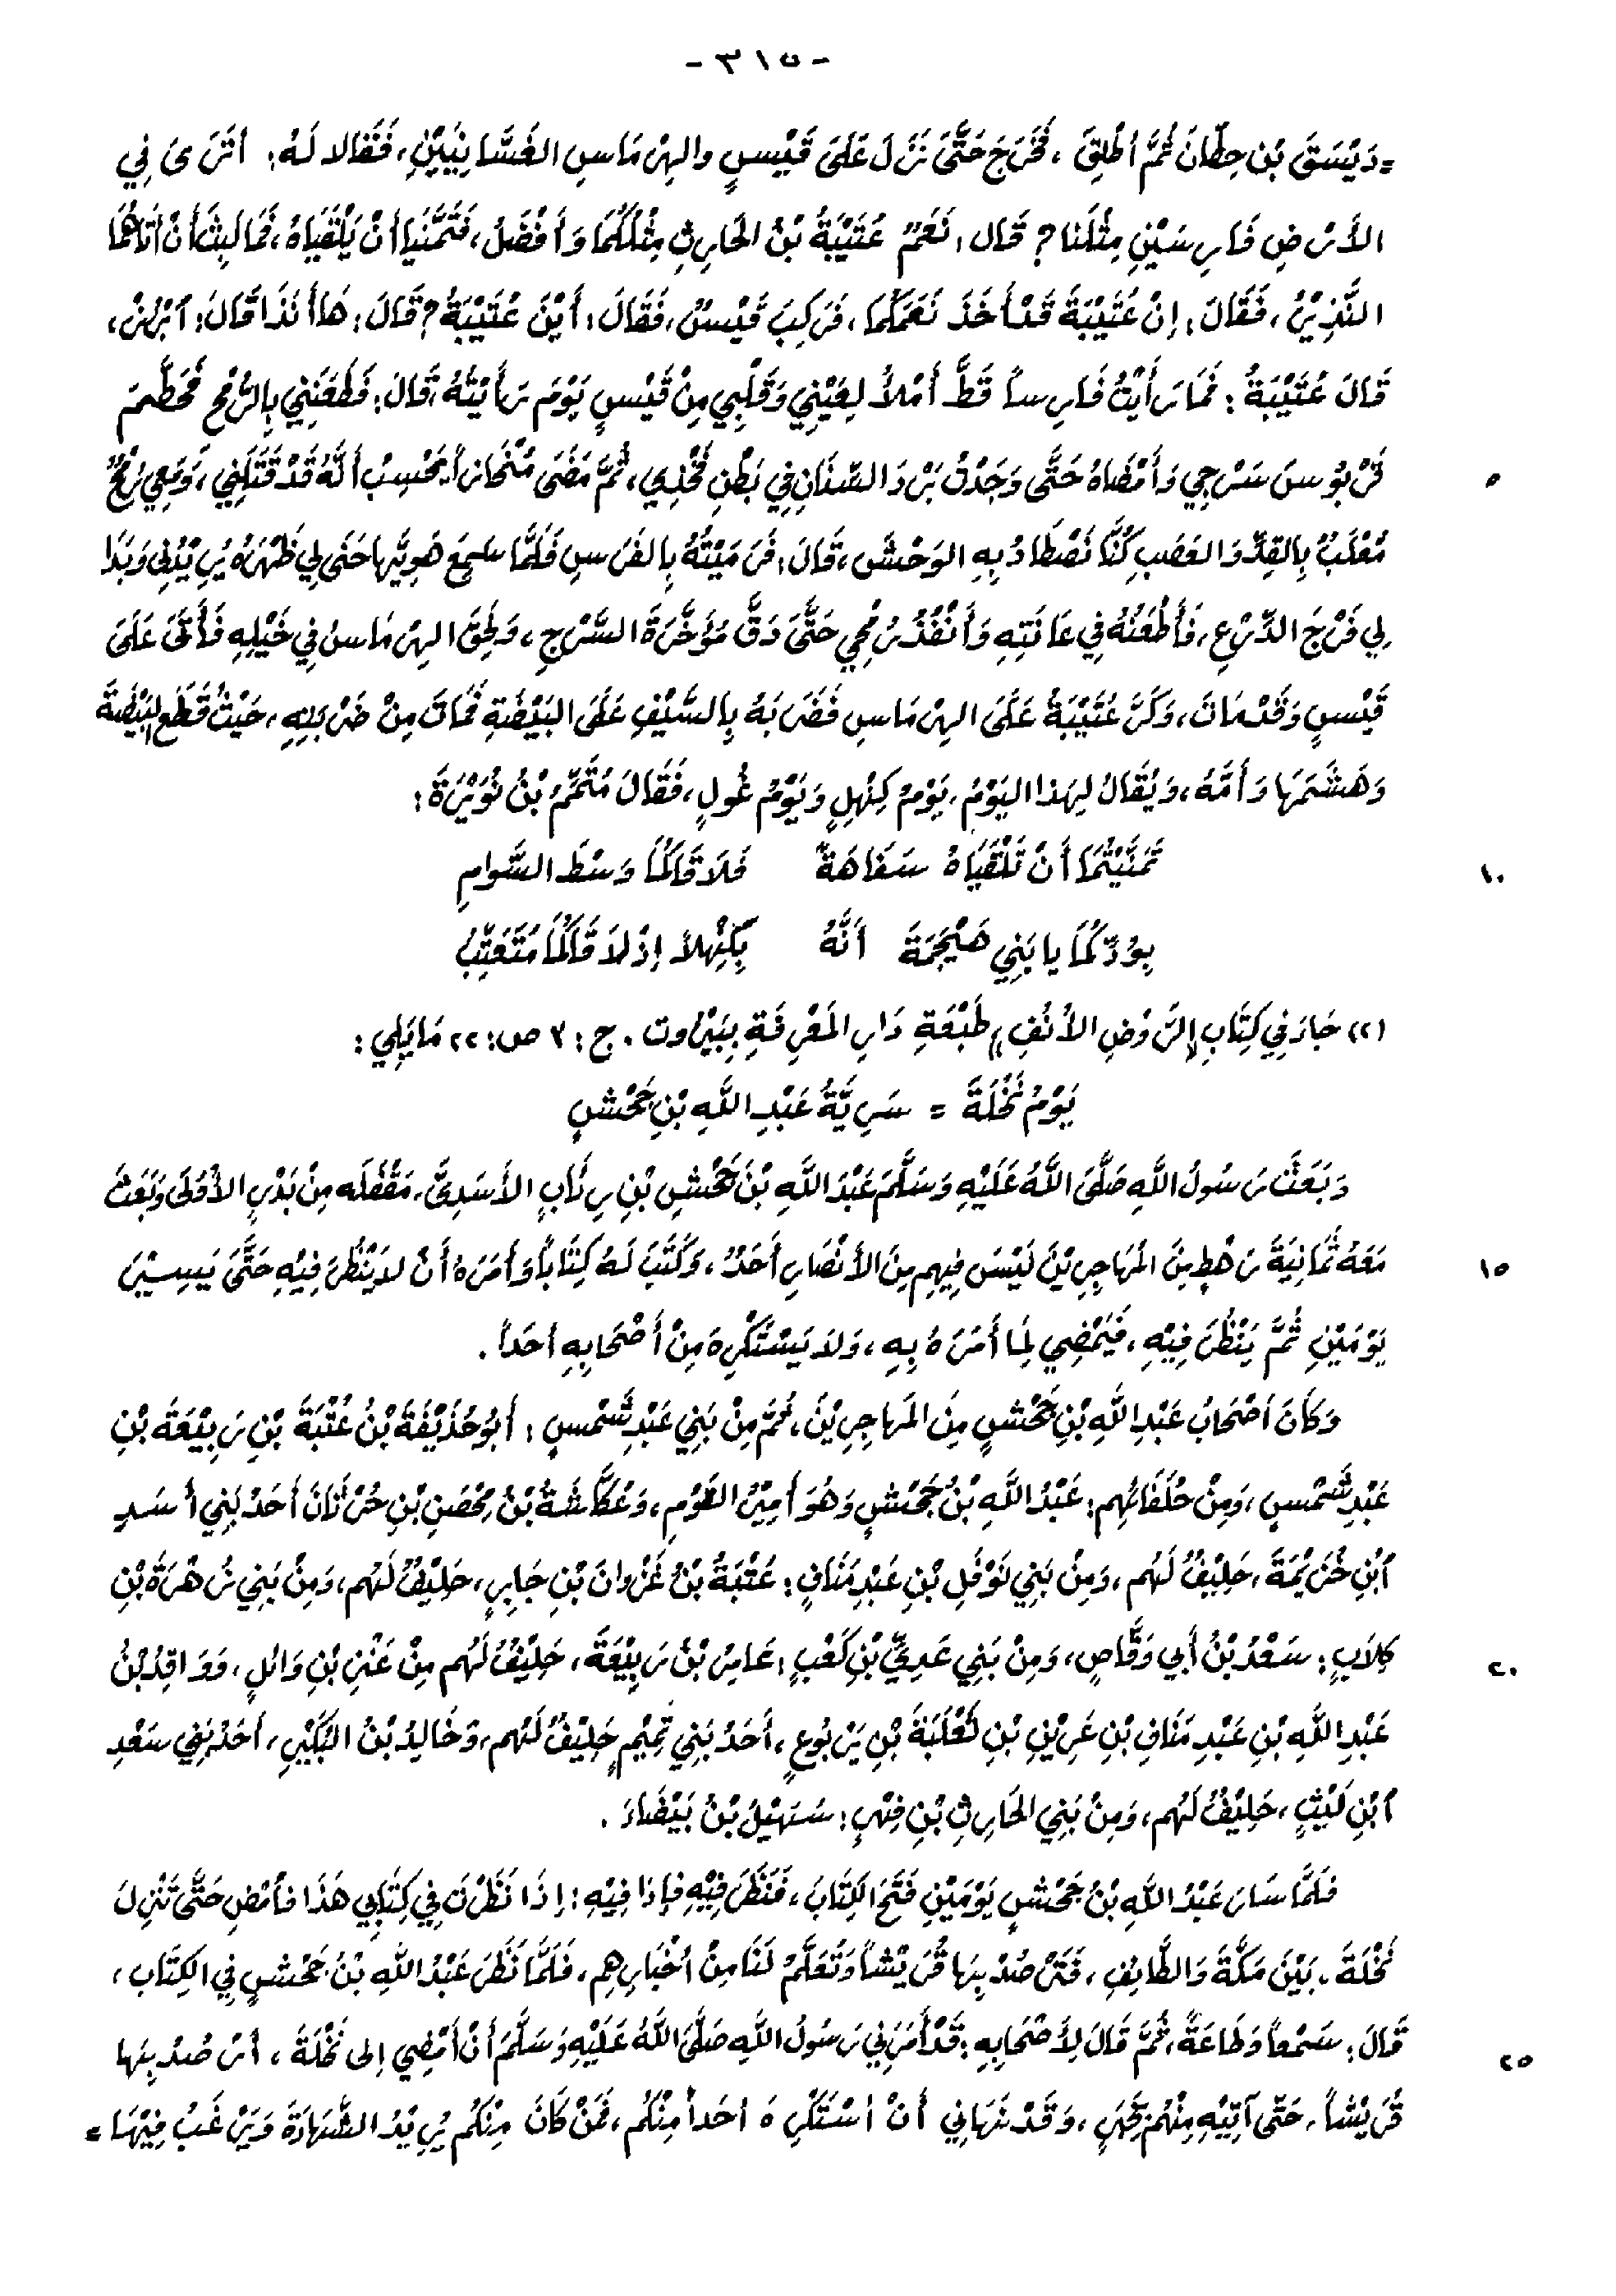 - ٣١٥ -
= دَيْسَقَ بْنِ حِطَّانَ ثُمَّ أُطْلِقَ ، فَخَرَجَ حَتَّى نَزَلَ عَلَى قَيْسٍ والهِرْمَاسِ الغَسَّانِيَّيْنِ، فَقَالا لَهُ: أتَرَى فِي
الأَرْضِ فَارِسَيْنِ مِثْلَنا؟ قَال: نَعَمْ عُتَيْبَةُ بْنُ الحَارِثِ مِثْلُكُمَا وَأَفْضَلُ، فَتَمَنَّيَا أَنْ يَلْقَيَاهُ، فَمَا لَبِثَا أنْ أتَاهُمَا
النَّذِيْرُ، فَقَالَ: إِنَّ عُتَيْبَةَ قَدْ أَخَذَ نَعَمَكُمَا، فَرَكِبَ قَيْسٌ، فَقَالَ: أَيْنَ عُتَيْبَةُ؟ قَالَ: هَا أَنَذَا قَالَ: اَبْرُزْ،
قَالَ عُتَيْبَةُ: فَمَا رَأَيْتُ فَارِساً قَطُّ أَمْلأَ لِعَيْنِي وَقَلْبِي مِنْ قَيْسٍ يَوْمَ رَأَيْتُهُ، قَالَ: فَطَعَنَنِي بِالرُّمْحِ فَحَطَّمَ
٥ قَرْبُوسَ سَرْجِي وَأَمْضَاهُ حَتَّى وَجَدْتُ بَرْدَ السِّنَانِ فِي بَطْنِ فَخْذِي، ثُمَّ مَضَى مُنْحَازاً يَحْسِبُ أَنَّهُ قَدْ قَتَلَنِي، وَمَعِي رُمْحٌ
مُعْلَبٌ بِالقِدِّ وَالعَصَبِ كُنَّا نَصْطَادُ بِهِ الوَحْشَ، قَالَ: فَرَمَيْتُهُ بِالفَرَسِ فَلَمَّا سَمِعَ هَوِيَّها حَنَى لِي ظَهْرَهُ يُرِيْدُنِي وَبَدَا
لِي فَرْجَ الدِّرْعِ، فَأَطْعَنُهُ فِي عَانَتِهِ وَأَنْفُذُ رُمْحِي حَتَّى دَقَّ مُؤَخَّرَةَ السَّرْجِ، وَلَحِقَ الهِرْمَاسُ فِي خَيْلِهِ فَأَتَى عَلَى
قَيْسٍ وَقَدْ مَاتَ، وَكَرَّ عُتَيْبَةُ عَلَى الهِرْمَاسِ فَضَرَبَهُ بِالسَّيْفِ عَلَى البَيْضَةِ فَمَاتَ مِنْ ضَرْبَتِهِ، حَيْثُ قَطَعَ البَيْضَةَ
وَهَشَمَهَا وَأَمَّهُ، وَيُقَالُ لِهَذا اليَوْمُ، يَوْمُ كِنْهِلٍ وَيَوْمُ غُولٍ، فَقَالَ مُتَمِّمُ بْنُ نُوَيْرَةَ:
١٠ تَمَنَّيْتُمَا أَنْ تَلْقَيَاهُ سَفَاهَةً فَلاَقَاكُمَا وَسْطَ السَّوامِ
بِوُدِّكُمَا يا بَنِي هَيْجَمَةَ أنَّهُ بِكِنْهِلاَ إِذْ لاَقَاكُمَا مُتَعَتِّبُ
(٢) جَاءَ فِي كِتَابِ «الرَّوْضِ الأُنُفِ» طَبْعَةِ دَارِ المَعْرِفَةِ بِبَيْرُوت. ج: ٣ ص: ٢٢ مَا يَلِي:
يَوْمُ نَخْلَةَ = سَرِيَّةُ عَبْدِ اللَّهِ بْنِ جَحْشٍ
وَبَعَثَ رَسُولُ اللَّهِ صَلَّى اللَّهُ عَلَيْهِ وَسَلَّمَ عَبْدَ اللَّهِ بْنَ جَحْشِ بْنِ رِئَابٍ الأَسَدِيَّ، مَقْفَلَه مِنْ بَدْرٍ الأُوْلَى وَبَعَثَ
١٥ مَعَهُ ثَمَانِيَةَ رَهْطٍ مِنَ المُهَاجِرِيْنَ لَيْسَ فِيهِم مِنَ الأَنْصَارِ أَحَدٌ، وَكَتَبَ لَهُ كِتَاباً وَأَمَرَهُ أَنْ لا يَنْظُرَ فِيْهِ حَتَّى يَسِيْرَ
يَوْمَيْنِ ثُمَّ يَنْظُرَ فِيْهِ، فَيَمْضِي لِمَا أَمَرَهُ بِهِ، وَلا يَسْتَكْرِهَ مِنْ أَصْحَابِهِ أَحَداً.
وَكَانَ أَصْحَابُ عَبْدِ اللَّهِ بْنِ جَحْشٍ مِنَ المُهاجِرِيْنَ، ثُمَّ مِنْ بَنِي عَبْدِ شَمْسٍ: أَبُو حُذَيْفَةَ بْنُ عُتْبَةَ بْنِ رَبِيْعَةَ بْنِ
عَبْدِ شَمْسٍ، وَمِنْ حُلَفَائِهِم: عَبْدُ اللَّهِ بْنُ جَحْشٍ وَهُوَ أَمِيْرُ القَوْمِ، وَعُكَّاشَةُ بْنُ مِحْصَنِ بْنِ حُرْثَانَ أَحَدُ بَنِي أَسَدِ
اَبْنِ خُزَيْمَةَ، حَلِيْفٌ لَهُم، وَمِنْ بَنِي نَوْفَلِ بْنِ عَبْدِ مَنَافٍ: عُتْبَةُ بْنُ غَزْوانَ بْنِ جَابِرٍ، حَلِيْفٌ لَهُم، وَمِنْ بَنِي زُهْرَةَ بْنِ
٢٠ كِلاَبٍ: سَعْدُ بْنُ أَبِي وَقَّاصٍ، وَمِنْ بَنِي عَدِيِّ بْنِ كَعْبٍ: عَامِرُ بْنُ رَبِيْعَةَ، حَلِيْفٌ لَهُم مِنْ عَنْزِ بْنِ وَائِلٍ، وَوَاقِدُ بْنُ
عَبْدِ اللَّهِ بْنِ عَبْدِ مَنَافِ بْنِ عَرِيْنِ بْنِ ثَعْلَبَةَ بْنِ يَرْبُوعٍ، أَحَدُ بَنِي تَمِيْمٍ حَلِيْفٌ لَهُم، وَخَالِدُ بْنُ البُكَيْرِ، أَحَدُ بَنِي سَعْدِ
اَبْنِ لَيْثٍ، حَلِيْفٌ لَهُم، وَمِنْ بَنِي الحَارِثِ بْنِ فِهْرٍ: سُهَيْلُ بْنُ بَيْضَاءَ.
فَلَمَّا سَارَ عَبْدُ اللَّهِ بْنُ جَحْشٍ يَوْمَيْنِ فَتَحَ الكِتَابَ، فَنَظَرَ فِيْهِ فإِذا فِيْهِ: إِذَا نَظَرْتَ فِي كِتَابِي هَذَا فأَمْضِ حَتَّى تَنْزِلَ
نَخْلَةَ، بَيْنَ مَكَّةَ وَالطَّائِفِ، فَتَرْصُدْ بِهَا قُرَيْشاً وَتَعَلَّمْ لَنَا مِنْ أَخْبَارِهِم، فَلَمَّا نَظَرَ عَبْدُ اللَّهِ بْنُ جَحْشٍ فِي الكِتَابِ،
٢٥ قَالَ: سَمْعاً وَطَاعَةً، ثُمَّ قَالَ لِأَصْحَابِهِ: قَدْ أَمَرَنِي رَسُولُ اللَّهِ صَلَّى اللَّهُ عَلَيْهِ وَسَلَّمَ أَنْ أَمْضِي إِلى نَخْلَةَ، أَرْصُدُ بِهَا
قُرَيْشاً، حَتَّى آتِيْهِ مِنْهُم بِخَبَرٍ، وَقَدْ نَهَانِي أَنْ أَسْتَكْرِهَ أَحَداً مِنْكُم، فَمَنْ كَانَ مِنْكُم يُرِيْدُ الشَّهَادَةَ وَيَرْغَبُ فِيْهَا =